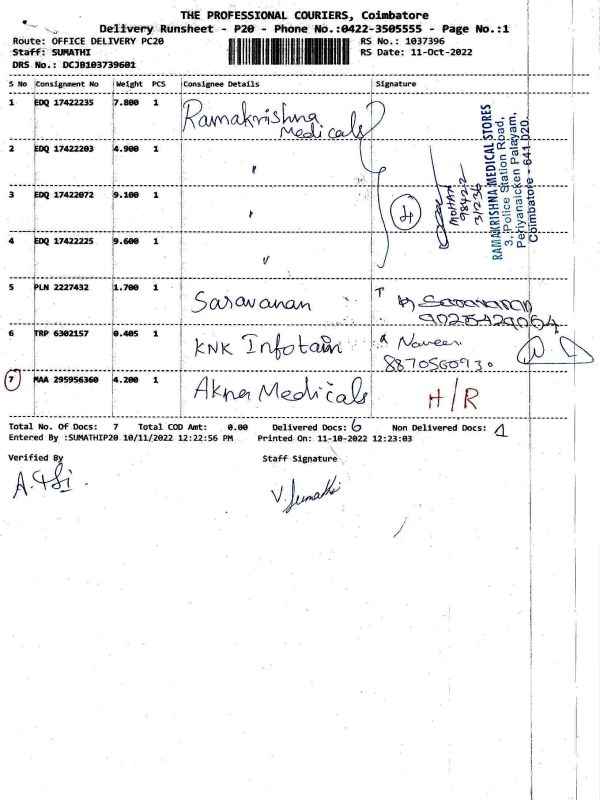 THE PROFESSIONAL COURIERS, Coimbatore
Delivery Runsheet - P20 - Phone No.:0422-3505555 - Page No.:1
Route: OFFICE DELIVERY PC20 RS No.: 1037396
Staff: SUMATHI RS Date: 11-Oct-2022
DRS No.: DCJB103739601
S No Consignment No Weight PCS Consignee Details Signature
1 EDQ 17422235 7.800 1 Ramakrishna Medicals
2 EDQ 17422203 4.900 1 "
3 EDQ 17422072 9.100 1 "
4 EDQ 17422225 9.600 1 "
4
MOHAN
98422
31236
RAMAKRISHNA MEDICAL STORES
3, Police Station Road,
Periyanaicken Palayam,
Coimbatore - 641 020.
5 PLN 2227432 1.700 1 Saravanan Saravanan
9025429064
6 TRP 6302157 0.405 1 KNK Infotain Naveen
8870560930
7 MAA 295956360 4.200 1 Akna Medicals H/R
Total No. Of Docs: 7 Total COD Amt: 0.00 Delivered Docs: 6 Non Delivered Docs: 1
Entered By :SUMATHIP20 10/11/2022 12:22:56 PM Printed On: 11-10-2022 12:23:03
Verified By Staff Signature
V. Sumathi